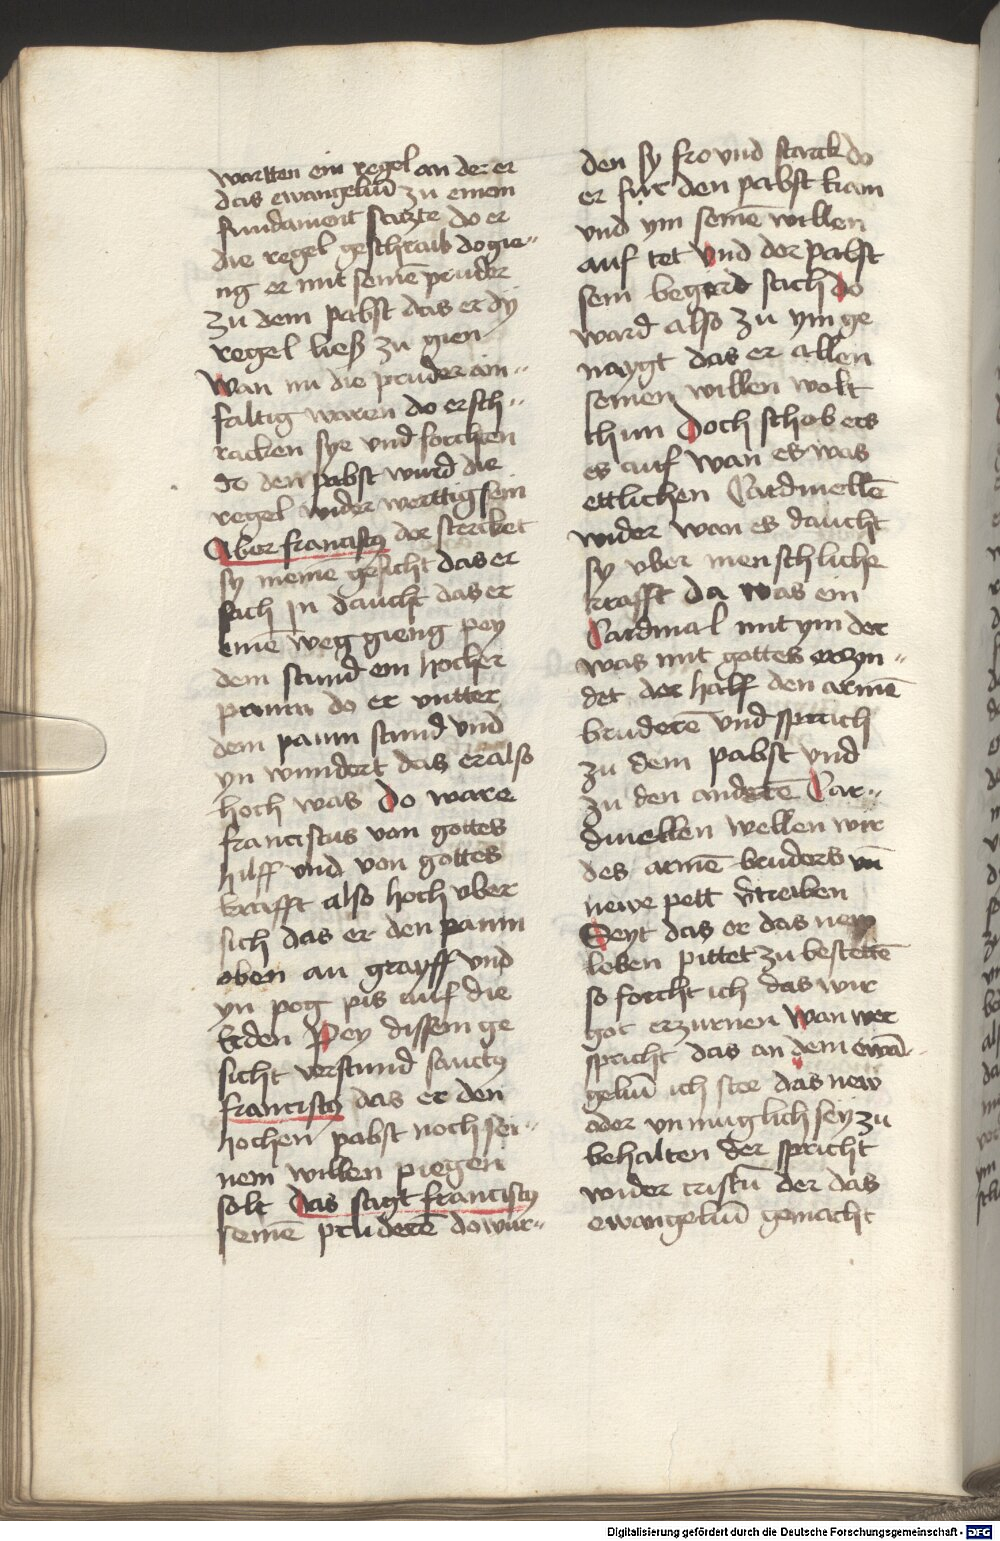 wartten ein regel an der er
das ewangeliū zu einem
fundament satzte do er
die regel geschraib do gie-
ng er mit seinē pruder
zu dem pabst das er dy
regel ließ zu gien
Wan nu die pruder ain-
faltig waren do ersch-
racken sye vnd forchten
do den pabst wurd die
regel wider werttig sein
Aber franciscꝯ der stercket
sy meine gesicht das er
sach jn daucht das er
einē weg gieng pey
dem stund ein hocher
paum do er vntter
dem paum stund vnd
yn wundert das er also
hoch was Do ware
franciscus von gottes
hilff vnd von gottes
krafft also hoch vber
sich das er den paum
oben an grayff vnd
yn pog pis auf die
Erden Pey dissem ge
sicht verstund sanctꝯ
franciscꝯ das er den
hochen pabst noch sei-
nem willen piegen
solt Das sagt franciscꝯ
seinē pruderē do wur-
den sy fro vnd starck do
er fur den pabst kam
vnd ym seinē willen
auf tet Vnd der pabst
sein begerd sach do
ward also zu ym ge
naygt das er allen
seinen willen wolt
thun Doch schob ers
es auf wan es was
ettlichen Cardinellē
wider wan es daucht
sy vber menschliche
krafft da was ein
Cardinal mit ym der
was mit gottes erzin-
det der half den armē
bruderē vnd sprach
zu dem pabst vnd
zu den anderē Car-
dinellen wellen wir
des armē bruders vn̄
newe pett v̄treiben
Seyt das er das new
leben pittet zu bestettē
so forcht ich das wir
got erzurnen Wan wer
spricht das an dem ewā-
geliū ich stee das new
oder vnmuglich sey zu
behalten der spricht
wider cristū der das
ewangeliū gemacht
Digitalisierung gefördert durch die Deutsche Forschungsgemeinschaft - DFG